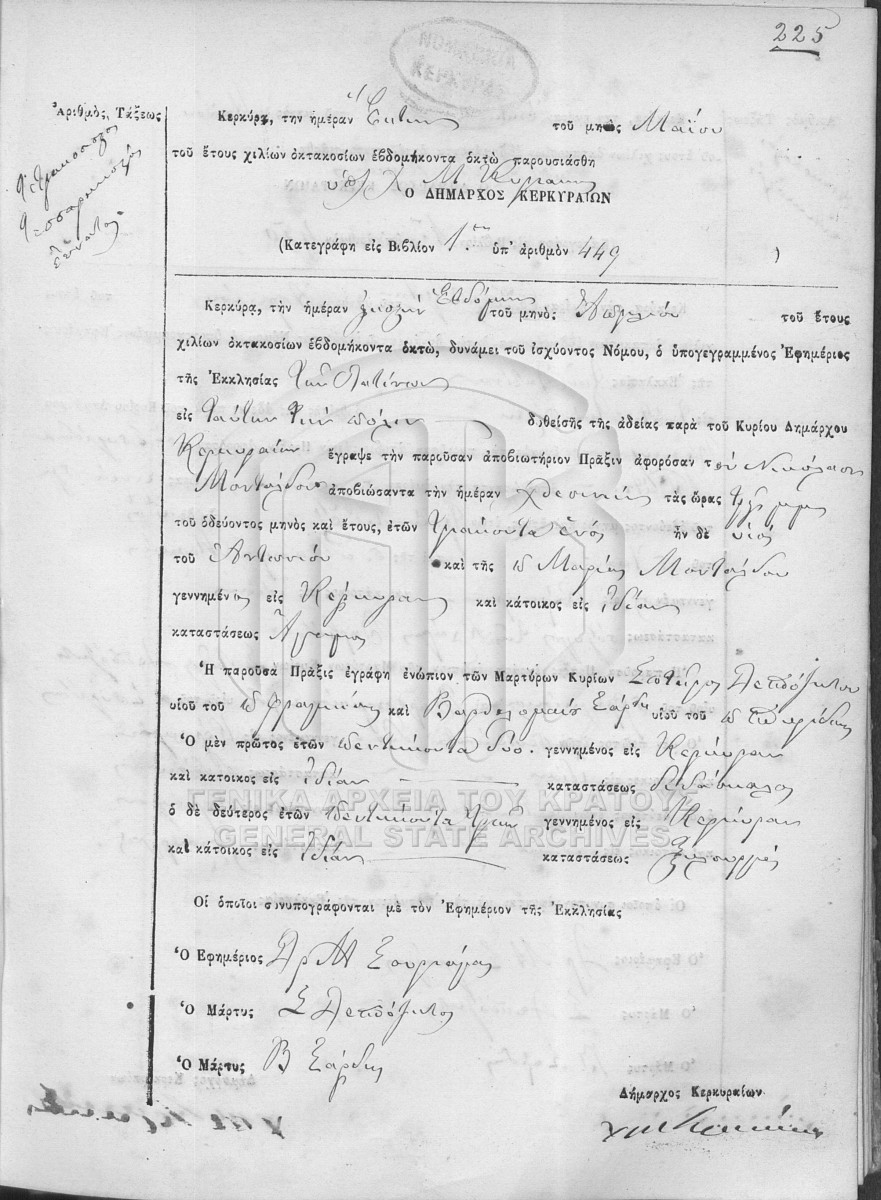 225
ΝΟΜΑΡΧΙΑ
ΚΕΡΚΥΡΑΣ
Ἀριθμὸς, Τάξεως
Τετρακόσια
Τεσσαράκοντα
ἐννέα
Κερκύρα, την ἡμέραν Ἕκτην τοῦ μηνὸς Μαΐου
τοῦ ἔτους χιλίων ὀκτακοσίων ἑβδομήκοντα ὀκτὼ παρουσιάσθη
Ο ΔΗΜΑΡΧΟΣ ΚΕΡΚΥΡΑΙΩΝ
(Κατεγράφη εἰς Βιβλίον 1ον ὑπ' ἀριθμὸν 449 )
Κερκύρᾳ, τὴν ἡμέραν εἰκοστὴν Ἑβδόμην τοῦ μηνὸς Ἀπριλίου τοῦ ἔτους
χιλίων ὀκτακοσίων ἑβδομήκοντα ὀκτὼ, δυνάμει τοῦ ἰσχύοντος Νόμου, ὁ ὑπογεγραμμένος Ἐφημέριος
τῆς Ἐκκλησίας Τῶν Λατίνων
εἰς Ταύτην Τὴν πόλιν δοθείσης τῆς ἀδείας παρὰ τοῦ Κυρίου Δημάρχου
Κερκυραίων ἔγραψε τὴν παροῦσαν ἀποβιωτήριον Πρᾶξιν ἀφορόσαν τὸν Νικόλαον
Μονταλδον ἀποβιώσαντα τὴν ἡμέραν χθεσινὴν τὰς ὥρας
τοῦ ὁδεύοντος μηνὸς καὶ ἔτους, ἐτῶν τριάκοντα ἑνός ἦν δὲ υἱός
τοῦ Ἀντωνίου καὶ τῆς Μαρίας Μονταλδου
γεννημένος εἰς Κέρκυραν καὶ κάτοικος εἰς Ἰδίαν
καταστάσεως Ἄγαμος
Ἡ παροῦσα Πρᾶξις ἐγράφη ἐνώπιον τῶν Μαρτύρων Κυρίων Σωτῆρος
υἱοῦ τοῦ καὶ Βαρθολομαίου Σάρδη υἱοῦ τοῦ
Ὁ μὲν πρῶτος ἐτῶν πεντήκοντα δύο. γεννημένος εἰς Κέρκυραν
καὶ κατοικος εἰς Ἰδίαν καταστάσεως διδάσκαλος
ὁ δὲ δεύτερος ἐτῶν πεντήκοντα τριῶν γεννημένος εἰς Κέρκυραν
καὶ κάτοικος εἰς Ἰδίαν καταστάσεως ξυλουργός
ΓΕΝΙΚΑ ΑΡΧΕΙΑ ΤΟΥ ΚΡΑΤΟΥΣ
GENERAL STATE ARCHIVES
Οἱ ὁποῖοι συνυπογράφονται μὲ τὸν Ἐφημέριον τῆς Ἐκκλησίας
Ὁ Ἐφημέριος
Ὁ Μάρτυς Σ
Ὁ Μάρτυς Β Σάρδης
Δήμαρχος Κερκυραίων